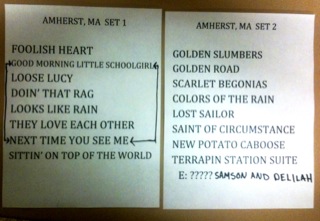 AMHERST, MA SET 1
FOOLISH HEART
GOOD MORNING LITTLE SCHOOLGIRL
LOOSE LUCY
DOIN' THAT RAG
LOOKS LIKE RAIN
THEY LOVE EACH OTHER
NEXT TIME YOU SEE ME
SITTIN' ON TOP OF THE WORLD
AMHERST, MA SET 2
GOLDEN SLUMBERS
GOLDEN ROAD
SCARLET BEGONIAS
COLORS OF THE RAIN
LOST SAILOR
SAINT OF CIRCUMSTANCE
NEW POTATO CABOOSE
TERRAPIN STATION SUITE
E: ????? SAMSON AND DELILAH